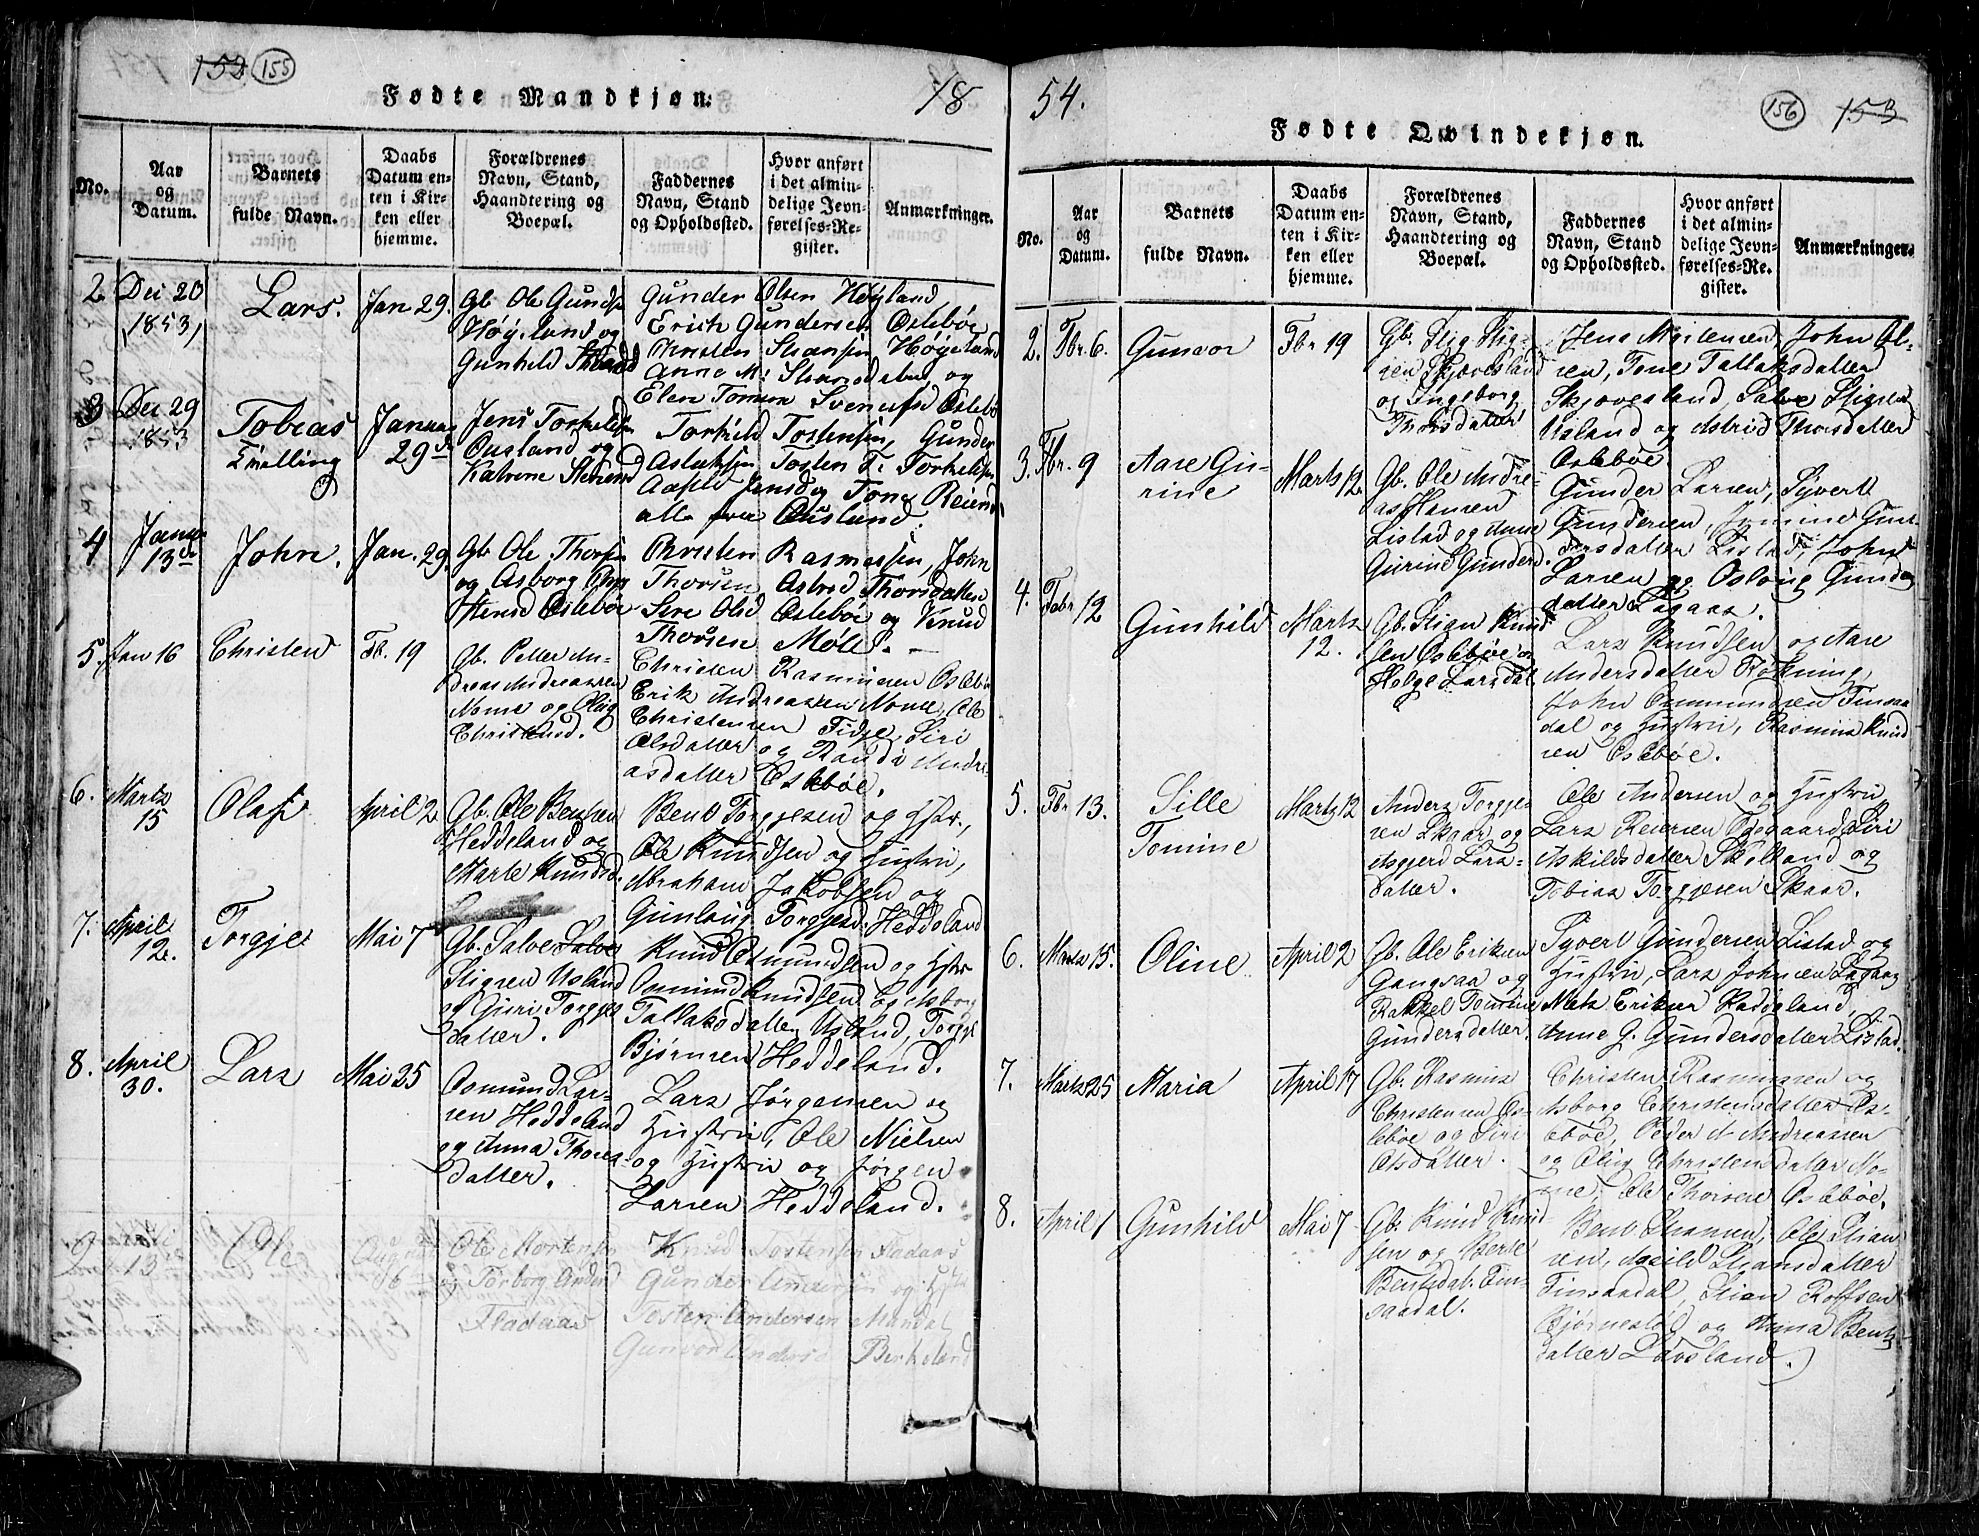 152 155
Fødte Mandkjøn. 18
No.
Aar
og
Datum.
Barnets
fulde Navn.
Daabs
Datum en-
ten i Kir-
ken eller
hjemme.
Forældrenes
Navn, Stand,
Haandtering og
Boepæl.
Faddernes
Navn, Stand
og Opholdssted.
Hvor anført
i det almin-
delige Jevn-
førelses-Re-
gister.
Anmærkninger.
2. Dec 20
1853,
Lars.
Jan 29.
Gb. Ole Gunds.
Høyeland og
Gunhild
Gunder Olsen Høyland
Erich Gundersen Oslebøe
Christen Høyeland
Anne M. og
Elen Oslebø
3 Dec 29
1853
Tobias
Januar
29
Jens Torkelsen
Ousland og
Katrine
Torkild Tostensen, Gunder
Aslaksen Tosten T. Torkelsen
alle fra Ousland.
4
13de
John.
Jan. 29
Gb. Ole Thorsen
og Asborg
Oslebøe
Christen Rasmussen, John
Thorsen Astrid Thorsdatter
Olsd Oslebøe og Knud
Thorsen
5. Jan 16
Christen
Fb. 19
Gb. Petter An-
dreas Andreassen
Nome og Olug
Christensd.
Christen Rasmussen Oslebøe
Erik Andreassen Nome, Ole
Christensen Fidje, Siri
Olsdatter og Randi Andre-
asdatter Oslebøe.
6. Marts
15
Olaf
April 2
Gb. Ole Bentsen
Heddeland og
Marte Knudsd.
Bent Torgjesen og Hstr.,
Ole Knudsen og Hustru,
Abraham Jakobsen og
Gunlaug Torgjesd. Heddeland
7. April
12.
Torgje
Mai 7
Gb. Salve Salve
Stigsen Usland
og Guri Torgjes
datter.
Knud Osmundsen og Hstr
Osmund Knudsen og Asborg
Tallaksdatter Usland, Torgje
Bjørnsen Heddeland.
8. April
30.
Lars
Mai 25
Osmund Lar-
sen Heddeland
og Anna Thores-
datter.
Lars Jørgensen og
Hustru, Ole Nielsen
og Hustru og Jørgen
Larsen Heddeland.
9
13
Ole
August
6
Ole Mortensen
og Torborg Andersd
Fladaas
Knud Tostensen Fladaas
Gunder Andersen og
Tosten Andersen Mandal
Gunvor Andersd Berkeland
54. 156 153
Fødte Qvindekjøn.
No.
Aar
og
Datum.
Barnets
fulde Navn.
Daabs
Datum en-
ten i Kir-
ken eller
hjemme.
Forældrenes
Navn, Stand,
Haandtering og
Boepæl.
Faddernes
Navn, Stand
og Opholdssted.
Hvor anført
i det almin-
delige Jevn-
førelses-Re-
gister.
Anmærkninger.
2. Fbr. 6.
Gunvor
Fbr 19
Gb. Stig Stig-
sen Skjævesland
og Ingeborg
Thorsdatter
Jens Mortensen, John Ol-
sen, Tone Tallaksdatter
Skjævesland, Salve Stigsen
Usland og Astrid Thorsdatter
Oslebøe.
3. Fbr. 9
Aase Gu-
rine
Marts 12
Gb. Ole Andre-
as Hansen
Lislad og Anne
Gurine Gundersd.
Gunder Larsen, Syvert
Gundersen, Jomine Gun-
dersdatter Lislad, John
Larsen og Oslaug Gunders
datter Lagaas.
4. Febr 12
Gunhild
Marts
12.
Gb. Stian Knud
sen Oslebøe og
Helge Larsdat.
Lars Knudsen og Aase
Andersdatter Røkning,
John Osmundsen Finsaa
dal og Hustru, Rasmus Knud
sen Oslebøe.
5. Fbr 13.
Sille
Tomine
Marts 12
Anders Torgje-
sen Skaar og
Asgjerd Lars-
datter.
Ole Andersen og Hustru
Lars Reiersen Ødegaard, Siri
Askildsdatter Skelland og
Tobias Torgjesen Skaar.
6. Marts 15.
Oline
April 2
Gb. Ole Eriksen
Gangsaa og
Rakkel Tomine
Gundersdatter.
Syvert Gundersen Lislad og
Hustru, Lars Johnsen Lagaas
Mats Eriksen
Anne G. Gundersdatter Lislad.
7. Marts 25
Maria
April 17
Gb. Rasmus
Christensen Os-
lebøe og Siri
Olsdatter.
Christen Rasmussen og
Asborg Christensdatter Os-
lebøe, Peder A Andreassen
og Olug Christensdatter No-
me, Ole Thorsen Oslebøe.
8. April 1
Gunhild
Mai 7
Gb. Knud Knud
sen og Berte
Bentsdat. Fin-
saadal.
Bent Stiansen, Ole Stian
sen, Stiansdatter
Finsaadal, Stian Rolfsen
Bjørnestøl og Anna Bents-
datter Lavsland.